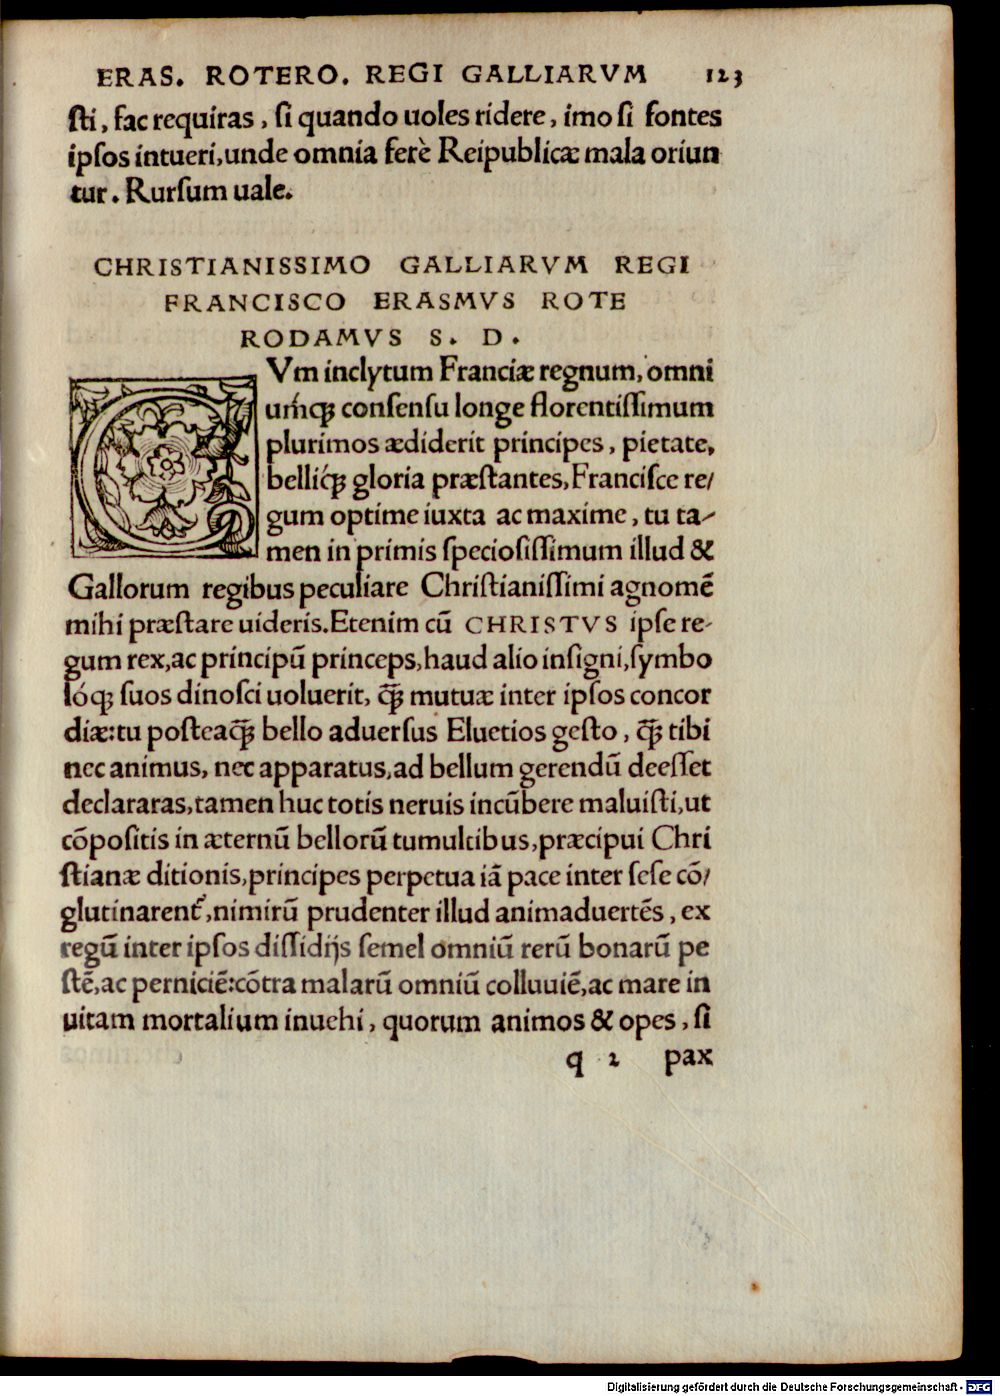 ERAS. ROTERO. REGI GALLIARVM 123
sti, fac requiras, si quando uoles ridere, imo si fontes
ipsos intueri, unde omnia ferè Reipublicæ mala oriun
tur. Rursum uale.
CHRISTIANISSIMO GALLIARVM REGI
FRANCISCO ERASMVS ROTE
RODAMVS S. D.
CVm inclytum Franciæ regnum, omni
uḿq; consensu longe florentissimum
plurimos ædiderit principes, pietate,
bellić̨q; gloria præstantes, Francisce re/
gum optime iuxta ac maxime, tu ta/
men in primis speciosissimum illud &
Gallorum regibus peculiare Christianissimi agnomẽ
mihi præstare uideris. Etenim cũ CHRISTVS ipse re/
gum rex, ac principũ princeps, haud alio insigni, symbo
lóq; suos dinosci uoluerit, q̃ꝫ mutuæ inter ipsos concor
diæ: tu posteaq̃ꝫ bello aduersus Eluetios gesto, q̃ꝫ tibi
nec animus, nec apparatus, ad bellum gerendũ deesset
declararas, tamen huc totis neruis incũbere maluisti, ut
cõpositis in æternũ bellorũ tumultibus, præcipui Chri
stianæ ditionis, principes perpetua iã pace inter sese cõ/
glutinarent᷑, nimirũ prudenter illud animaduertẽs, ex
regũ inter ipsos dissidijs semel omniũ rerũ bonarũ pe
stẽ, ac perniciẽ: cõtra malarũ omniũ colluuiẽ, ac mare in
uitam mortalium inuehi, quorum animos & opes, si
q 2 pax
Digitalisierung gefördert durch die Deutsche Forschungsgemeinschaft - DFG